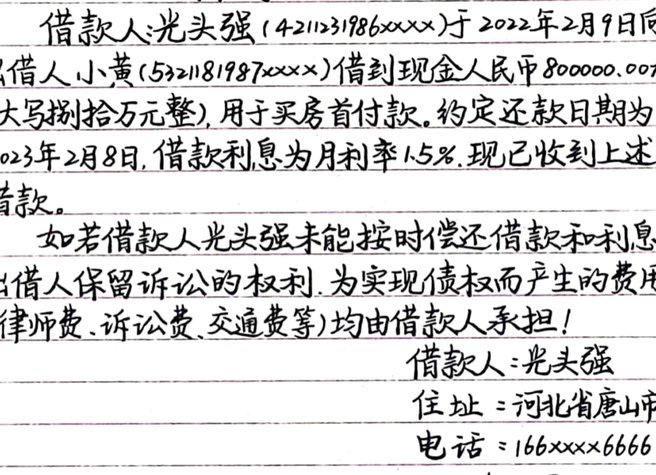 借款人:光头强(4211231986xxxx)于2022年2月9日向
出借人小黄(5321181987xxxx)借到现金人民币800000.00元
大写捌拾万元整),用于买房首付款。约定还款日期为
2023年2月8日,借款利息为月利率1.5%.现已收到上述
借款。
如若借款人光头强未能按时偿还借款和利息
出借人保留诉讼的权利.为实现债权而产生的费用
律师费、诉讼费、交通费等)均由借款人承担!
借款人:光头强
住址:河北省唐山市
电话:166xxxx6666